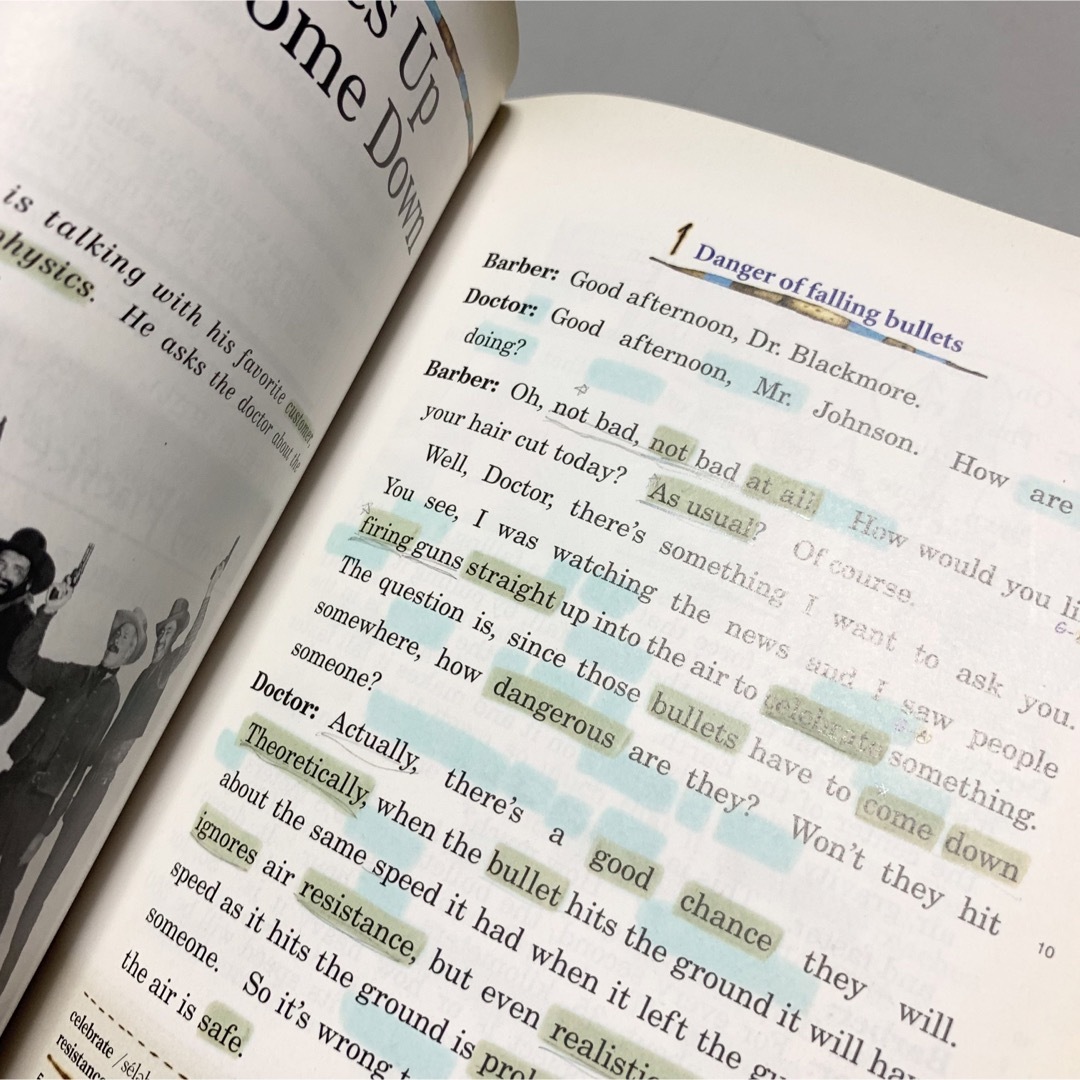 Up
ome Down
is talking with his favorite customer,
physics. He asks the doctor about the
1 Danger of falling bullets
Barber: Good afternoon, Dr. Blackmore.
Doctor: Good afternoon, Mr. Johnson. How are
doing?
Barber: Oh, not bad, not bad at all. How would you
your hair cut today? As usual? Of course.
Well, Doctor, there's something I want to ask you.
You see, I was watching the news and I saw people
firing guns straight up into the air to celebrate something.
The question is, since those bullets have to come down
somewhere, how dangerous are they? Won't they hit
someone?
10
Doctor: Actually, there's a good chance they will.
Theoretically, when the bullet hits the ground it will
about the same speed it had when it left the
ignores air resistance, but even
speed as it hits the ground is
someone. So it's wrong
the air is safe.
celebrate